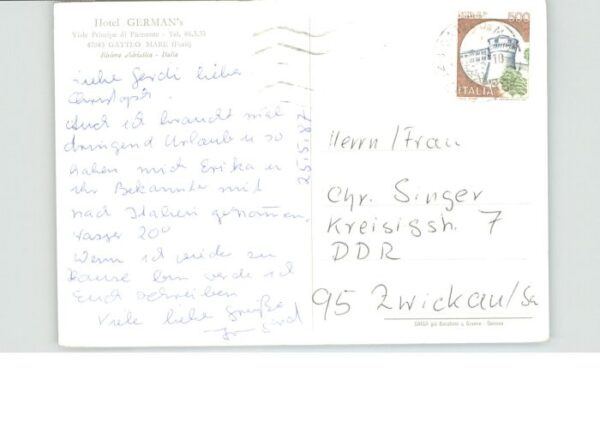 Hotel GERMAN's
Viale Principe di Piemonte - Tel. 86.3.53
47043 GATTEO MARE (Forlì)
Riviera Adriatica - Italia
500
ITALIA
Liebe Gerdi lieber
Christoph.
Auch ich braucht mal
dringend Urlaub u so
haben mich Erika u
ihr Bekannter mit
nach Italien genommen.
Wasser 20°
Wenn ich wieder zu
Hause bin werde ich
Euch schreiben
Viele liebe Grüße
Gerd
25.5.87
Herrn/Frau
Chr. Singer
Kreisigstr. 7
DDR
95 Zwickau/Sa